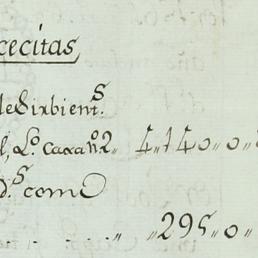 cecitas
de Sirbient.ˢ
l, L.º caxa n.º 2„ 4„140„0„
d.ˢ como
.... .... „ „295„0„